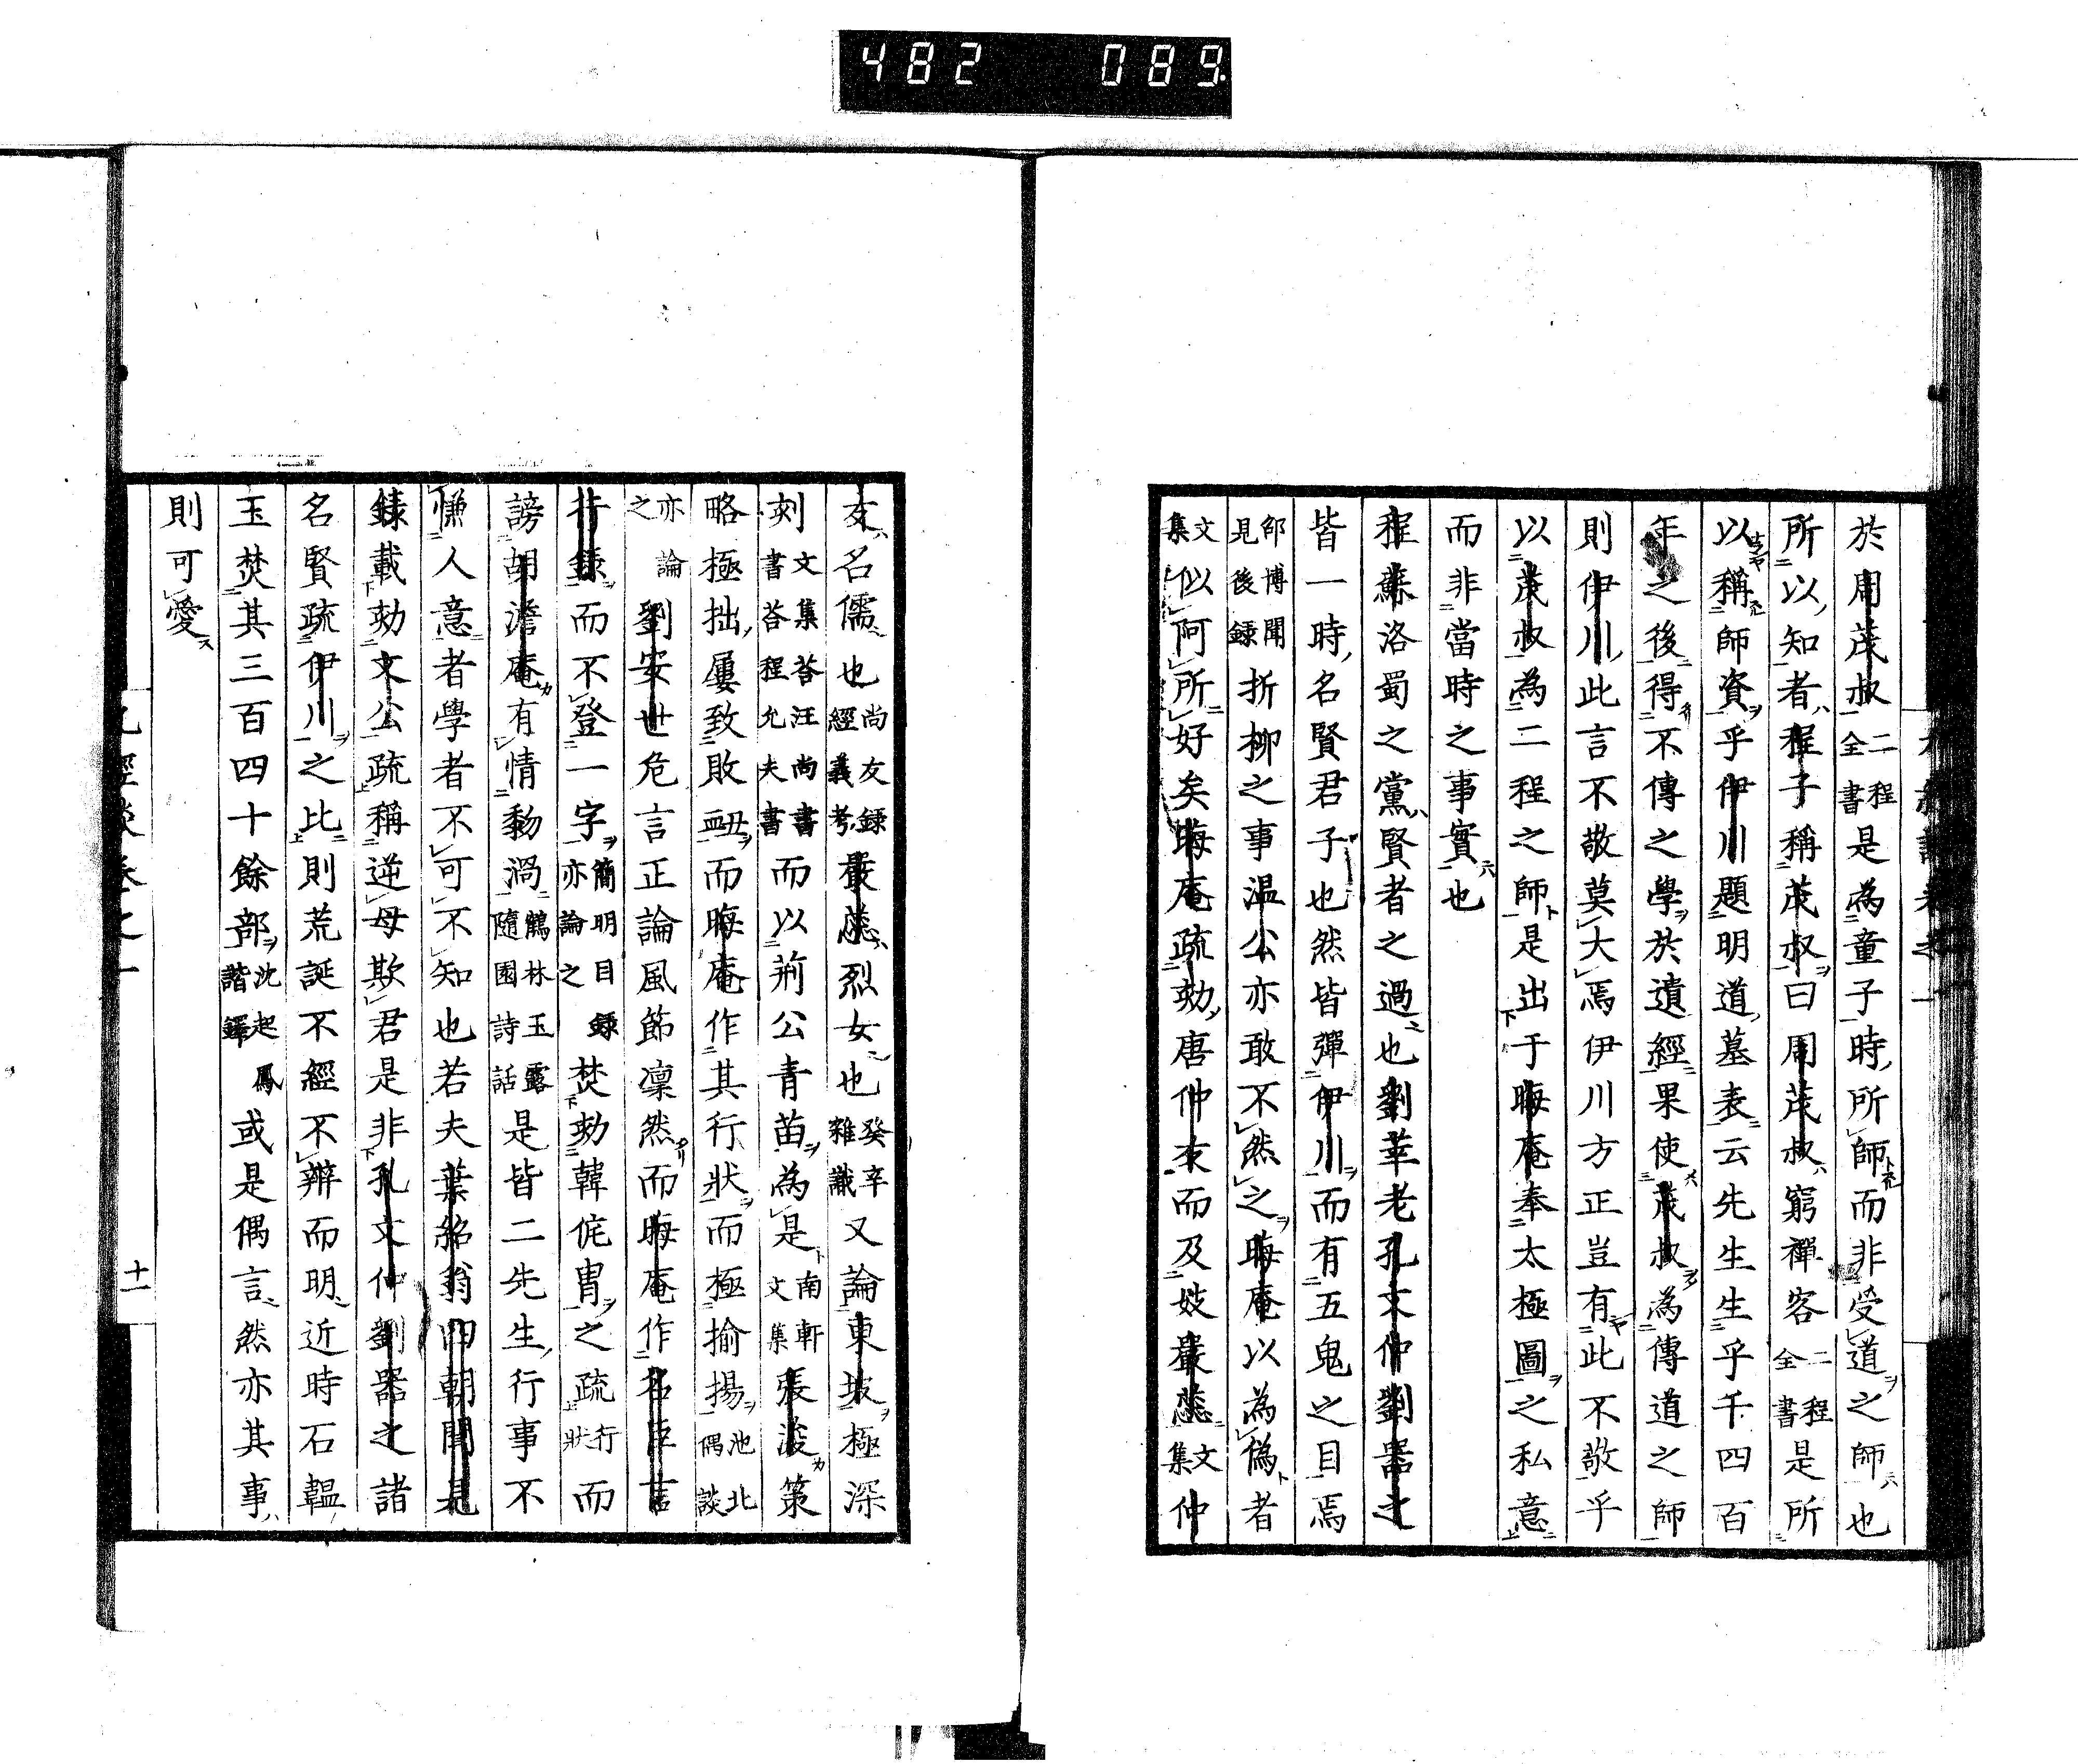 482 089
於周茂叔二程全書是為童子時所師而非受道之師也
所以知者程子稱茂叔曰周茂叔窮禪客二程全書是所
以稱師資乎伊川題明道墓表云先生生乎千四百
年之後得不傳之學於遺經果使茂叔為傳道之師
則伊川此言不敬莫大焉伊川方正豈有此不敬乎
以茂叔為二程之師是出于晦庵奉太極圖之私意
而非當時之事實也
程蘇洛蜀之黨賢者之過也劉莘老孔文仲劉器之
皆一時名賢君子也然皆彈伊川而有五鬼之目焉
邵博聞見後錄折柳之事温公亦敢不然之晦庵以為偽者
文集似阿所好矣晦庵疏劾唐仲友而及妓嚴蕊文集仲
友名儒也尚友錄經義考嚴蕊烈女也癸辛雜識又論東坡極深
刻文集荅汪尚書書荅程允夫書而以荊公青苗為是南軒文集張浚策
略極拙屢致敗衄而晦庵作其行狀而極揄揚池北偶談
亦論之劉安世危言正論風節凜然而晦庵作名臣言
行錄而不登一字簡明目錄亦論之焚劾韓侂冑之疏行狀而
謗胡澹庵有情黎渦鶴林玉露隨園詩話是皆二先生行事不
慊人意者學者不可不知也若夫葉紹翁四朝聞見
錄載劾文公疏稱逆母欺君是非孔文仲劉器之諸
名賢疏伊川之比則荒誕不經不辯而明近時石韞
玉焚其三百四十餘部沈起鳳諧鐸或是偶言然亦其事
則可愛
九經談卷之一
十一